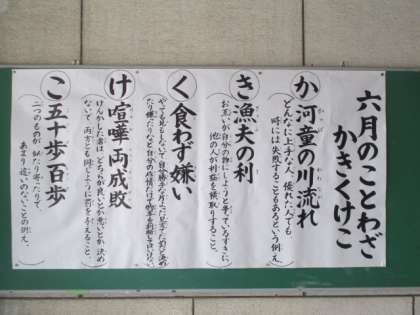 六月のことわざ
かきくけこ
か 河童の川流れ
どんなに上手な人、優れた人でも
時には失敗することもあるという例え。
き 漁夫の利
お互いが自分の物にしようと争っているすきに、
他の人が利益を横取りすること。
く 食わず嫌い
け 喧嘩両成敗
けんかした者は、どちらが良いとか悪いとか決め
ないで、両方とも同じように罰を与えること。
こ 五十歩百歩
二つのものが似たり寄ったりで、
あまり違いのないことの例え。